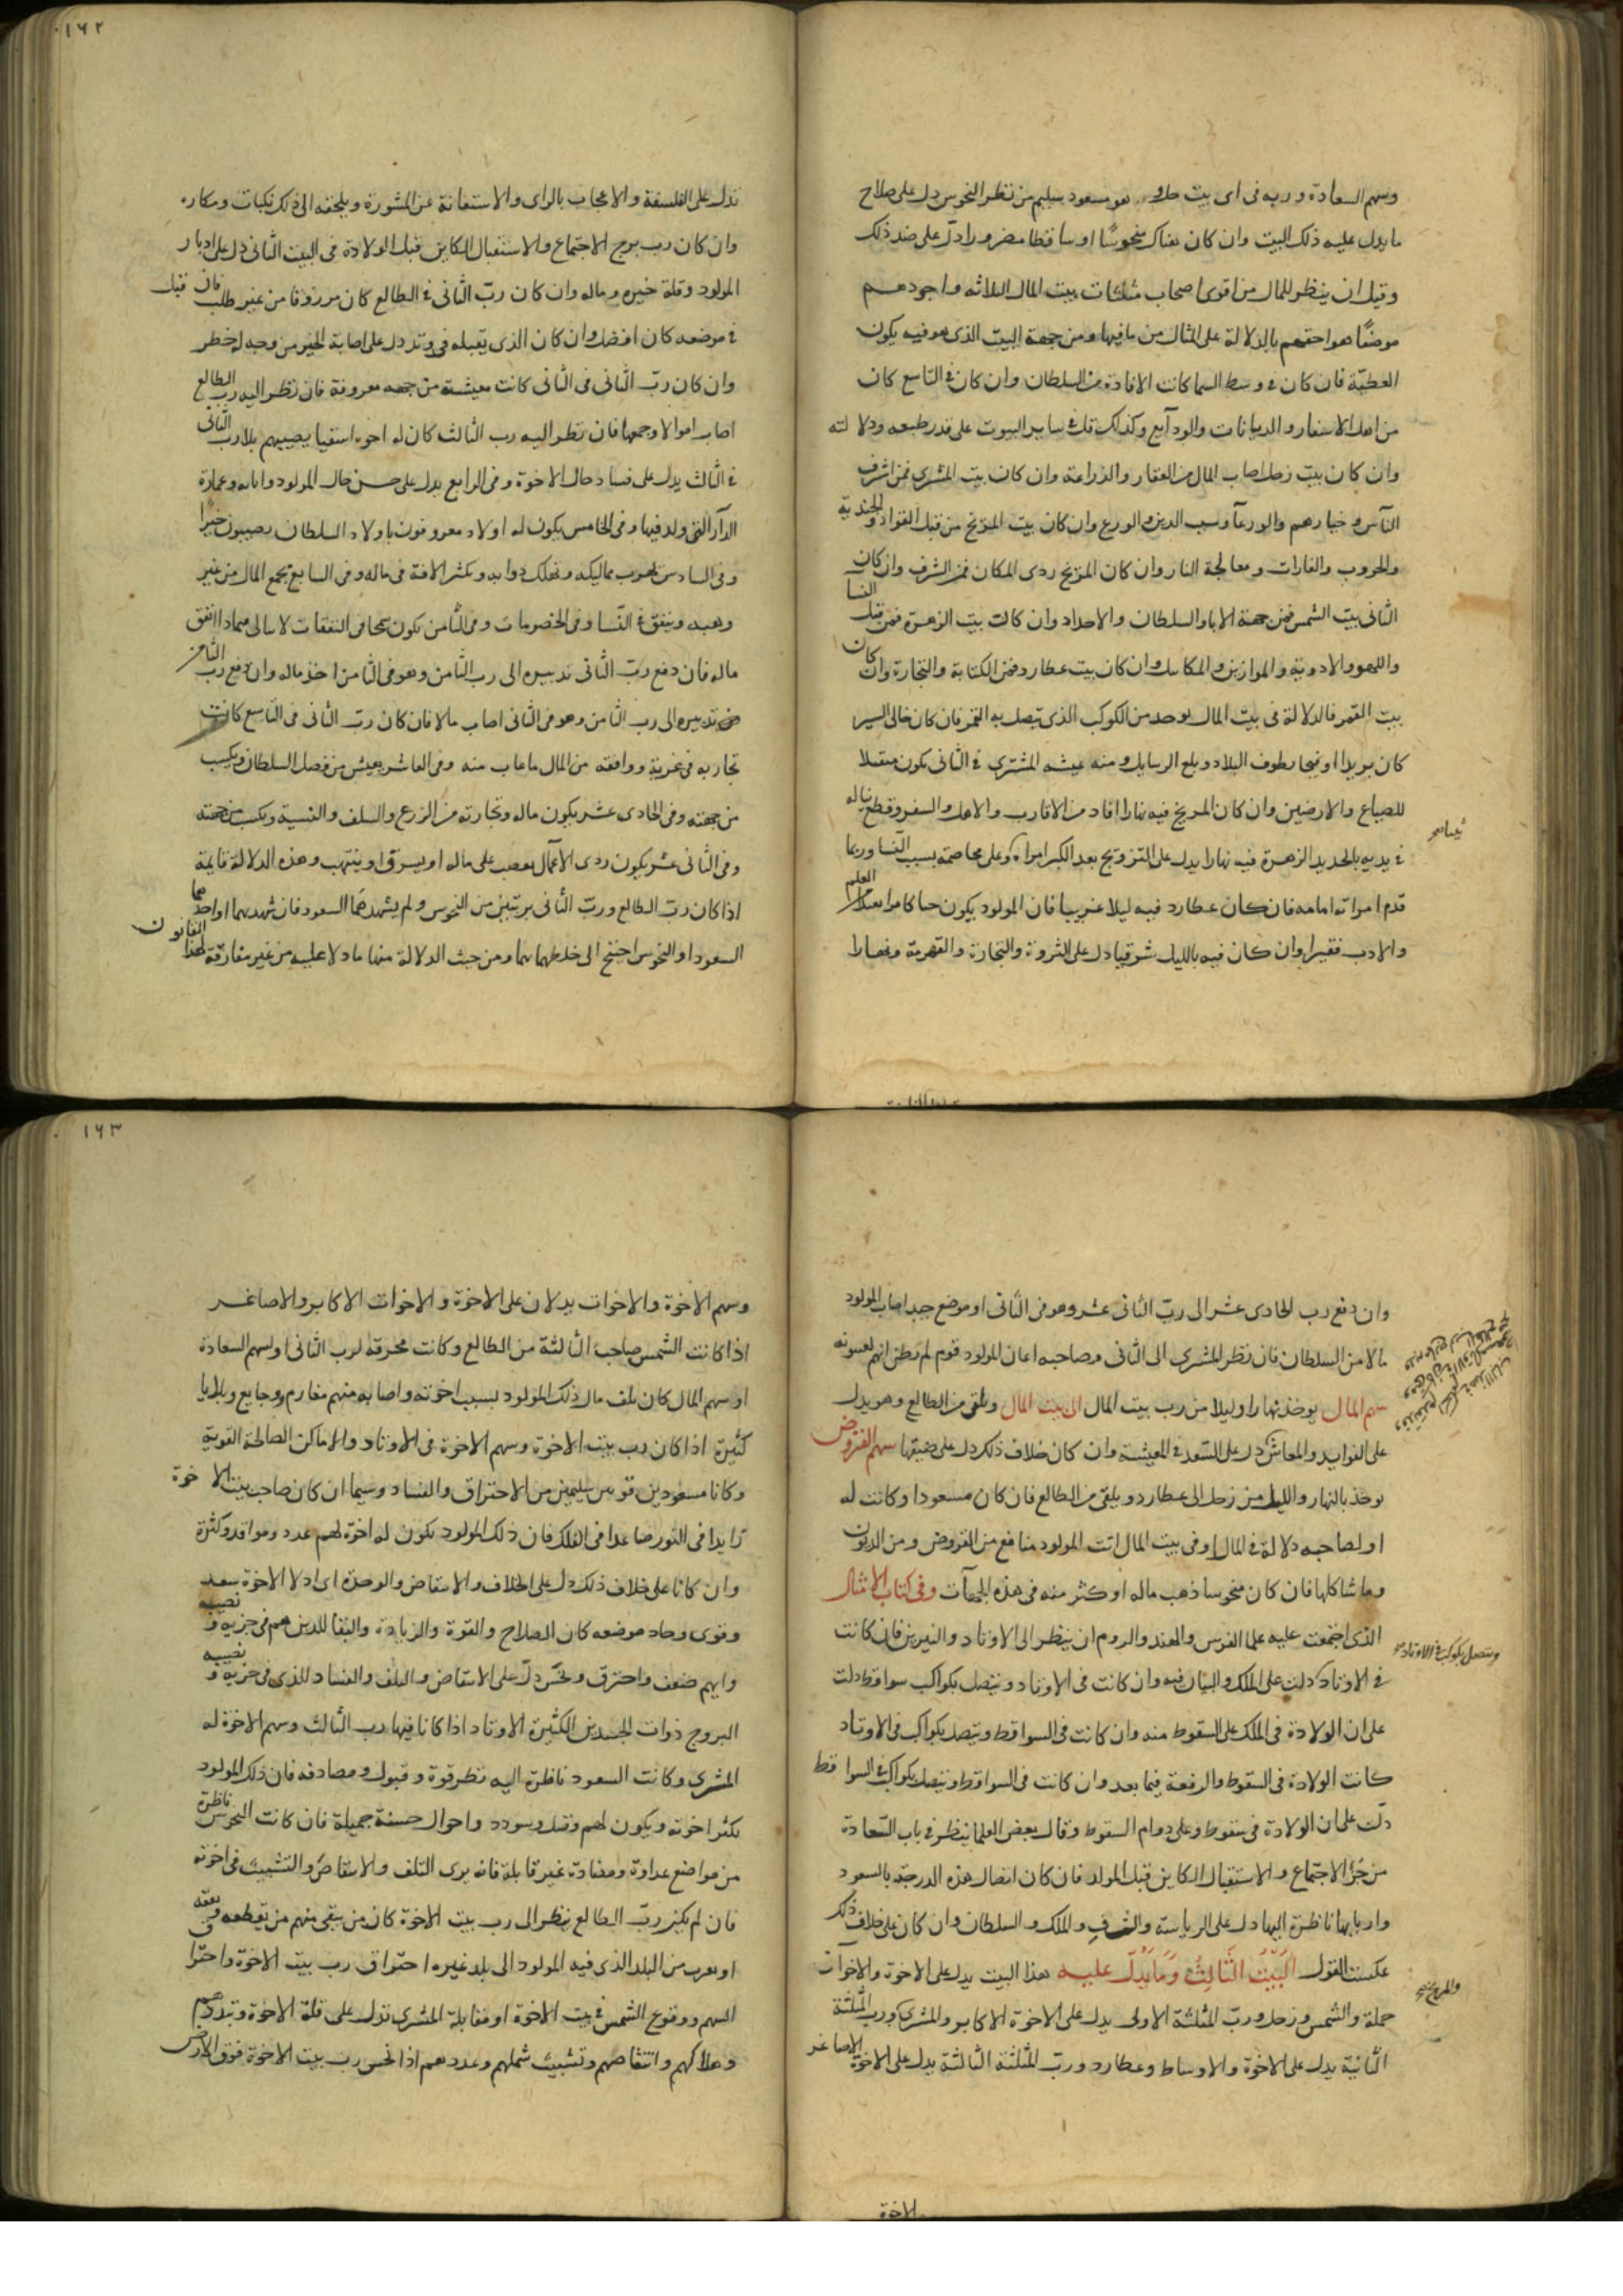 ١٦٢
وسهم السعادة وربه فى اى بيت حلا وهو مسعود سليم من نظر النحوس دل على صلاح
ما يدل عليه ذلك البيت وان كان هناك منحوسًا او ساقطا مضرورا دلّ على ضد ذلك
وقيل ان ينظر للمال من اقوى اصحاب مثلثات بيت المال الثلاثه واجودهم
موضعًا هو احقهم بالدلالة على المثال من ما فيها ومن جهة البيت الذى هو فيه يكون
العطيّة فان كان فى وسط السما كانت الافادة من السلطان وان كان فى التاسع كان
من اهل الاسفار والديانات والودآيع وكذلك قل فى ساير البيوت على قدر طبعه ودلالته
وان كان بيت زحل اصاب المال من العقار والزراعة وان كان بيت المشترى فمن اشرف
النآس وخيارهم والورعآ وسبب الدين والورع وان كان بيت المريخ من قبل القواد والجندية
والحروب والغارات ومعالجة النار وان كان المريخ ردى المكان فمن الشرف وان كان
الثانى بيت الشمس فمن جهة الابا والسلطان والاجداد وان كانت بيت الزهرة فمن قبل النسا
واللهو والادوية والموازين والمكاييل وان كان بيت عطارد فمن الكتابة والتجارة وان كان
بيت القمر فالدلالة فى بيت المال يوخذ من الكوكب الذى يتصل به القمر فان كان خالى السير
كان بريدا او فيجا يطوف البلاد ويبلغ الرسايل ومنه عيشه المشترى فى الثانى يكون متقبلا
للضياع والارضين وان كان المريخ فيه نهارا افاد من الاقارب والاهل والسفر وقطع ناله
فى يديه بالحديد الزهرة فيه نهارا يدل على التزويج بعد الكبر امراة وعلى مخاصمة بسبب النسا وربما
قدم امراته امامه فان كان عطارد فيه ليلا غربيا فان المولود يكون العلم
والادب فقيرا وان كان فيه بالليل شرقيا دل على الثروة والتجارة والقهرمة ونهارا
تدل على الفلسفة والاعجاب بالراى والاستغنانة عن المشورة ويلحقه الى ذلك نكبات ومكاره
وان كان رب برج الاجتماع والاستقبال الكاين قبل الولادة فى البيت الثانى دل على ادبار
المولود وقلة خيره وماله وان كان ربّ الثانى فى الطالع كان مرزوقا من غير طلب فان قبل
فى موضعه كان افضل وان كان الذى يقبله فى وتد دل على اصابة الخير من وجه له خطر
وان كان ربّ الثانى فى الثانى كانت معيشة من جهه معروفة فان نظر اليه رب الطالع
اصاب اموالا وجمعها فان نظر اليه رب الثالث كان له اخوه اسقيا يصيبهم بلا رب الثانى
فى الثالث يدل على فساد حال الاخوة وفى الرابع يدل على حسن حال المولود واباه وعمارة
الدآر التى ولد فيها وفى الخامس يكون له اولاد معروفون باولاد السلطان يصيبون خيرا
وفى السادس تهرب مماليكه وتهلك دوابه وتكثر الافة فى ماله وفى السابع يجمع المال من غير
وهبه وينفق فى النّسا وفى الخصومات وفى الثامن يكون سخيا فى النفقات لا يبالى فيماذا انفق
ماله فان دفع ربّ الثانى تدبيره الى رب الثامن وهو فى الثامن اخذ ماله وان دفع رب الثامن
تدبيره الى رب الثامن وهو فى الثانى اصاب مالا فان كان ربّ الثانى فى التاسع كانت
تجارته فى غربة ووافقه من المال ما غاب منه وفى العاشر يعيش من فضل السلطان ويكسب
من جهته وفى الحادى عشر يكون ماله وتجارته من الزرع والسلف والنسية ويكسب من جهته
وفى الثانى عشر يكون ردى الاعمال يغصب على ماله او يسرق او ينتهب وهذه الدلالة قايمة
اذا كان ربّ الطالع وربّ الثانى بريّين من النحوس ولم يشهدهما السعود فان شهدهما او احدهما
السعود او النحوس احتيج الى خلطهما بهما ومن حيث الدلالة منها ما دلا عليه من غير مفارقة لهذا القانون
١٦٣
وان دفع رب الحادى عشر الى ربّ الثانى عشر وهو فى الثانى او موضع جيد اصاب المولود
مالا من السلطان فان نظر المشترى الى الثانى وصاحبه اعان المولود قوم لم يظن انهم يعينونه
سهم المال يوخذ نهارا وليلا من رب بيت المال الى بيت المال ويلقى من الطالع وهو يدل
على الفوايد والمعاش دل على السّعد فى المعيشة وان كان خلاف ذلك دل على ضيقها سهم القروض
يوخذ بالنهار والليل من زحل الى عطارد ويلقى من الطالع فان كان مسعودا وكانت له
او لصاحبه دلالة فى المال او فى بيت المال اتت المولود منافع من القروض ومن الديون
وما شاكلها فان كان منحوسا ذهب ماله او كثر منه فى هذه الجهآت وفى كتاب الامثال
الذى اجتمعت عليه علما الفرس والهند والروم ان ينظر الى الاوتاد والنيرين فان كانت
ويتصل بكوكب فى الاوتاد
فى الاوتاد دلت على الملك والبيان فيه وان كانت فى الاوتاد ويتصل بكواكب سواقط دلت
على ان الولادة فى الملك على السقوط منه وان كانت فى السواقط ويتصل بكواكب فى الاوتاد
كانت الولادة فى السقوط والرفعة فيما بعد وان كانت فى السواقط ويتصل بكواكب فى السواقط
دلّت على ان الولادة فى سقوط وعلى دوام السقوط وقال بعض العلما ينظر فى باب السّعادة
من جُزؤ الاجتماع والاستقبال الكاين قبل المولد فان كان اتصال هذه الدرجة بالسعود
واربابها ناظرة اليها دل على الرياسة والشرف والملك والسلطان وان كان على خلاف ذلك
عكست القول اَلبَيْتُ الثَّالِثُ وَمَا يَدلّ عليه هذا البيت يدل على الاخوة والاخوآت
والمريخ
جملة والشمس وزحل وربّ المثلثة الاولى يدل على الاخوة الاكابر والمشترى ورب المثلثة
الثانية يدل على الاخوة والاوساط وعطارد وربّ المثلثة الثالثة يدل على الاخوة الاصاغر
الاخوة
وسهم الاخوة والاخوات يدلان على الاخوة والاخوات الاكابر والاصاغر
اذا كانت الشمس صاحب الثالثة من الطالع وكانت محرقة لرب الثانى او لسهم السعادة
او سهم المال كان تلف مال ذلك المولود بسبب اخوته واصابه منهم مغارم وجايع وبلايا
كثيرة اذا كان رب بيت الاخوة وسهم الاخوة فى الاوتاد والاماكن الصالحة القوية
وكانا مسعودين قويين سليمين من الاحتراق والفساد وسيما ان كان صاحب بيت الاخوة
زايدا فى النور صاعدا فى الفلك فان ذلك المولود يكون له اخوة لهم عدد وموافقة وكثرة
وان كانا على خلاف ذلك دل على الخلاف والانتقاض والوحدة اى ادلا الاخوة سعد
وقوى وجاد موضعه كان الصلاح والقوة والزيادة والبقا للذين هم فى حزبه ونصيبه
وايهم ضعف واحترق ونحس دلّ على الانتقاض والتلف والفساد للذى فى حزبه ونصيبه
البروج ذوات الجسدين الكثيرة الاوتاد اذا كانا فيها رب الثالث وسهم الاخوة له
المشترى وكانت السعود ناظرة اليه نظر قوة وقبول ومصادقة فان ذلك المولود
تكثر اخوته ويكون لهم وفضل وسودد واحوال حسنة جميلة فان كانت النحوس ناظرة
من مواضع عداوة ومضادة غير قابلة فانه يرى التلف والانتقاض والتشتيت فى اخوته
فان لم يكن ربّ الطالع ينظر الى رب بيت الاخوة كان من يبقى منهم من يقطعه ويعقه
او يهرب من البلد الذى فيه المولود الى بلد غيره احتراق رب بيت الاخوة واحترا ق
السهم ووقوع الشمس فى بيت الاخوة او مقابلة المشترى تدل على قلة الاخوة وتبددهم
وهلاكهم وانتقاصهم وتشتيت شملهم وعددهم اذا نحس رب بيت الاخوة فوق الارض